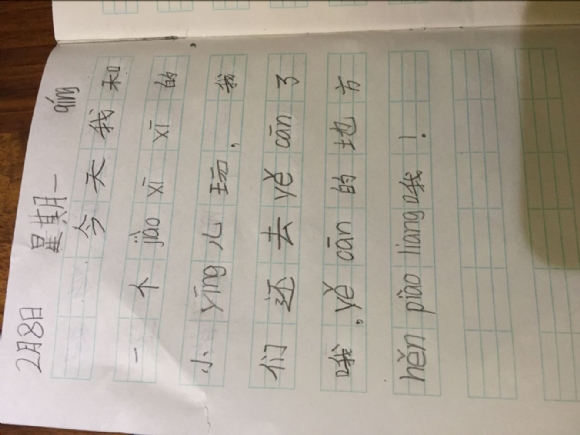 2月8日 星期一 qíng
今天我和
一个jiào xī xī的
小yīng儿玩，我
们还去yě cān了
哦，yě cān的地方
hěn piào liang哦！